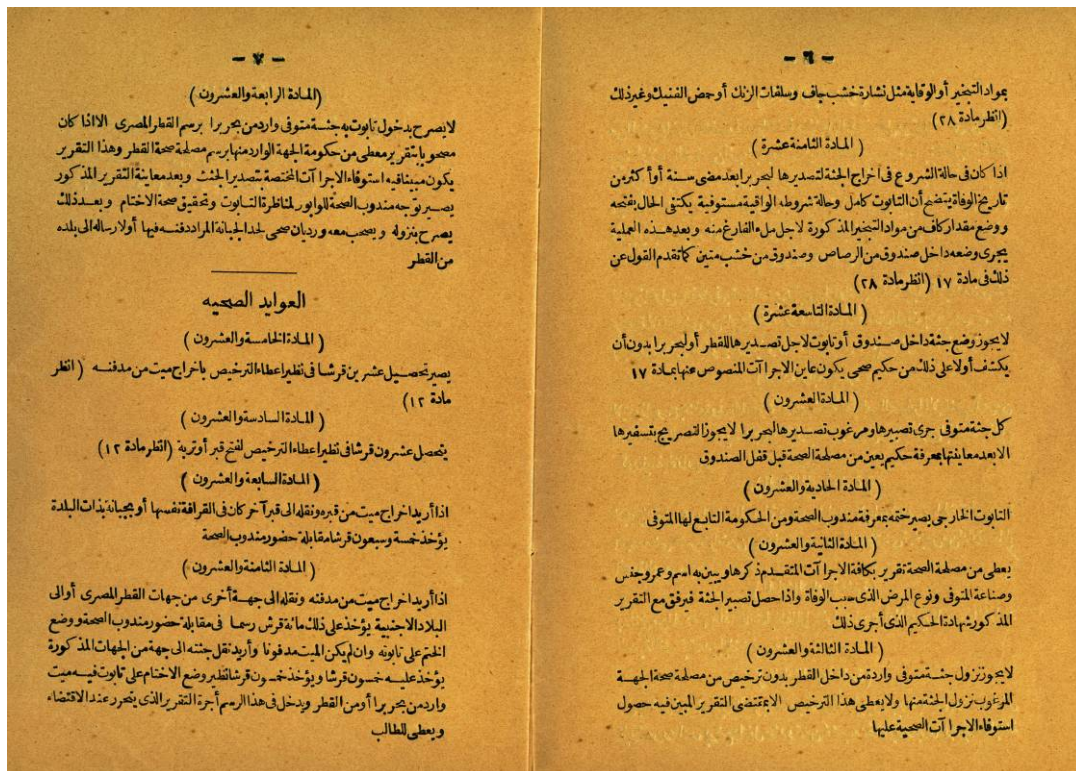 - ٦ -
بمواد التبخير أو الوقاية مثل نشارة خشب جاف وسلفات الزنك أو حمض الفنيك وغير ذلك
(انظر مادة ٢٨)
( المادة الثامنة عشرة )
اذا كان فى حالة الشروع فى اخراج الجثة لتصديرها لبحر برا بعد مضى سنة أو أكثر من
تاريخ الوفاة يتضح أن التابوت كامل وحالة شروطه الواقية مستوفية يكتفى الحال بفتحه
ووضع مقدار كاف من مواد التبخير المذكورة لاجل ملء الفارغ منه وبعد هذه العملية
يجرى وضعه داخل صندوق من الرصاص وصندوق من خشب متين كما تقدم القول عن
ذلك فى مادة ١٧ (انظر مادة ٢٨)
( المادة التاسعة عشرة )
لا يجوز وضع جثة داخل صندوق أو تابوت لاجل تصديرها للقطر أو لبحر برا بدون أن
يكشف أولا على ذلك من حكيم صحى يكون عاين الاجراآت المنصوص عنها بمادة ١٧
( المادة العشرون )
كل جثة متوفى جرى تصبيرها ومرغوب تصديرها لبحر برا لا يجوز التصريح بتسفيرها
الا بعد معاينتها بمعرفة حكيم يعين من مصلحة الصحة قبل قفل الصندوق
( المادة الحادية والعشرون )
التابوت الخارجى يصير ختمه بمعرفة مندوب الصحة ومن الحكومة التابع لها المتوفى
( المادة الثانية والعشرون )
يعطى من مصلحة الصحة تقرير بكافة الاجراآت المتقدم ذكرها ويبين به اسم وعمر وجنس
وصناعة المتوفى ونوع المرض الذى سبب الوفاة واذا حصل تصبير الجثة فيرفق مع التقرير
المذكور شهادة الحكيم الذى أجرى ذلك
( المادة الثالثة والعشرون )
لا يجوز نزول جثة متوفى واردة من داخل القطر بدون ترخيص من مصلحة صحة الجهة
المرغوب نزول الجثة منها ولا يعطى هذا الترخيص الا بمقتضى التقرير المبين فيه حصول
استوفاء الاجراآت الصحية عليها
- ٧ -
(المادة الرابعة والعشرون )
لا يصرح بدخول تابوت به جثة متوفى وارد من بحر برا برسم القطر المصرى الا اذا كان
مصحوبا بتقرير معطى من حكومة الجهة الوارد منها برسم مصلحة صحة القطر وهذا التقرير
يكون مبينا فيه استوفاء الاجراآت المختصة بتصدير الجثث وبعد معاينة التقرير المذكور
يصير توجه مندوب الصحة للوابور لمناظرة التابوت وتحقيق صحة الاختام وبعد ذلك
يصرح بنزوله ويصحب معه ورديان صحى لحد الجبانة المراد دفنه فيها أو لارساله الى بلده
من القطر
العوايد الصحيه
( المادة الخامسة والعشرون )
يصير تحصيل عشرين قرشا فى نظير اعطاء الترخيص باخراج ميت من مدفنه ( انظر
مادة ١٢)
( المادة السادسة والعشرون )
يتحصل عشرون قرشا فى نظير اعطاء الترخيص لفتح قبر أو تربة (انظر مادة ١٢)
( المادة السابعة والعشرون )
اذا أريد اخراج ميت من قبره ونقله الى قبر آخر كان فى القرافة نفسها أو بجبانة بذات البلدة
يؤخذ خمسة وسبعون قرشا مقابلة حضور مندوب الصحة
( المادة الثامنة والعشرون )
اذا أريد اخراج ميت من مدفنه ونقله الى جهة أخرى من جهات القطر المصرى أو الى
البلاد الاجنبية يؤخذ على ذلك مائة قرش رسما فى مقابلة حضور مندوب الصحة ووضع
الختم على تابوته وان لم يكن الميت مدفونا وأريد نقل جثته الى جهة من الجهات المذكورة
يؤخذ عليه خمسون قرشا ويؤخذ خمسون قرشا نظير وضع الاختام على تابوت فيه ميت
وارد من بحر برا أو من القطر ويدخل فى هذا الرسم أجرة التقرير الذى يتحرر عند الاقتضاء
ويعطى للطالب